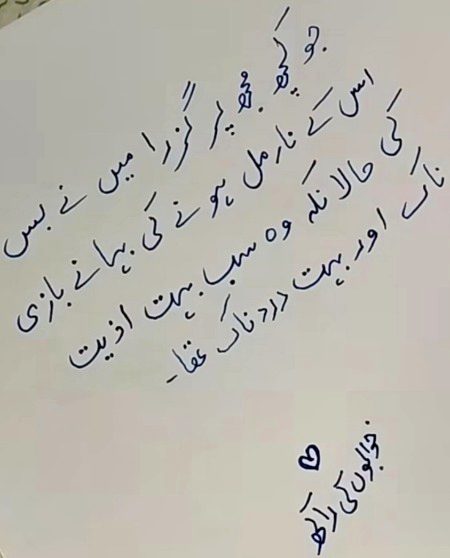 جو کچھ مجھ پر گزرا میں نے بس
اس کے نارمل ہونے کی بہانے بازی
کی حالانکہ وہ سب بہت اذیت
ناک اور بہت دردناک تھا۔
خوابوں کی راکھ